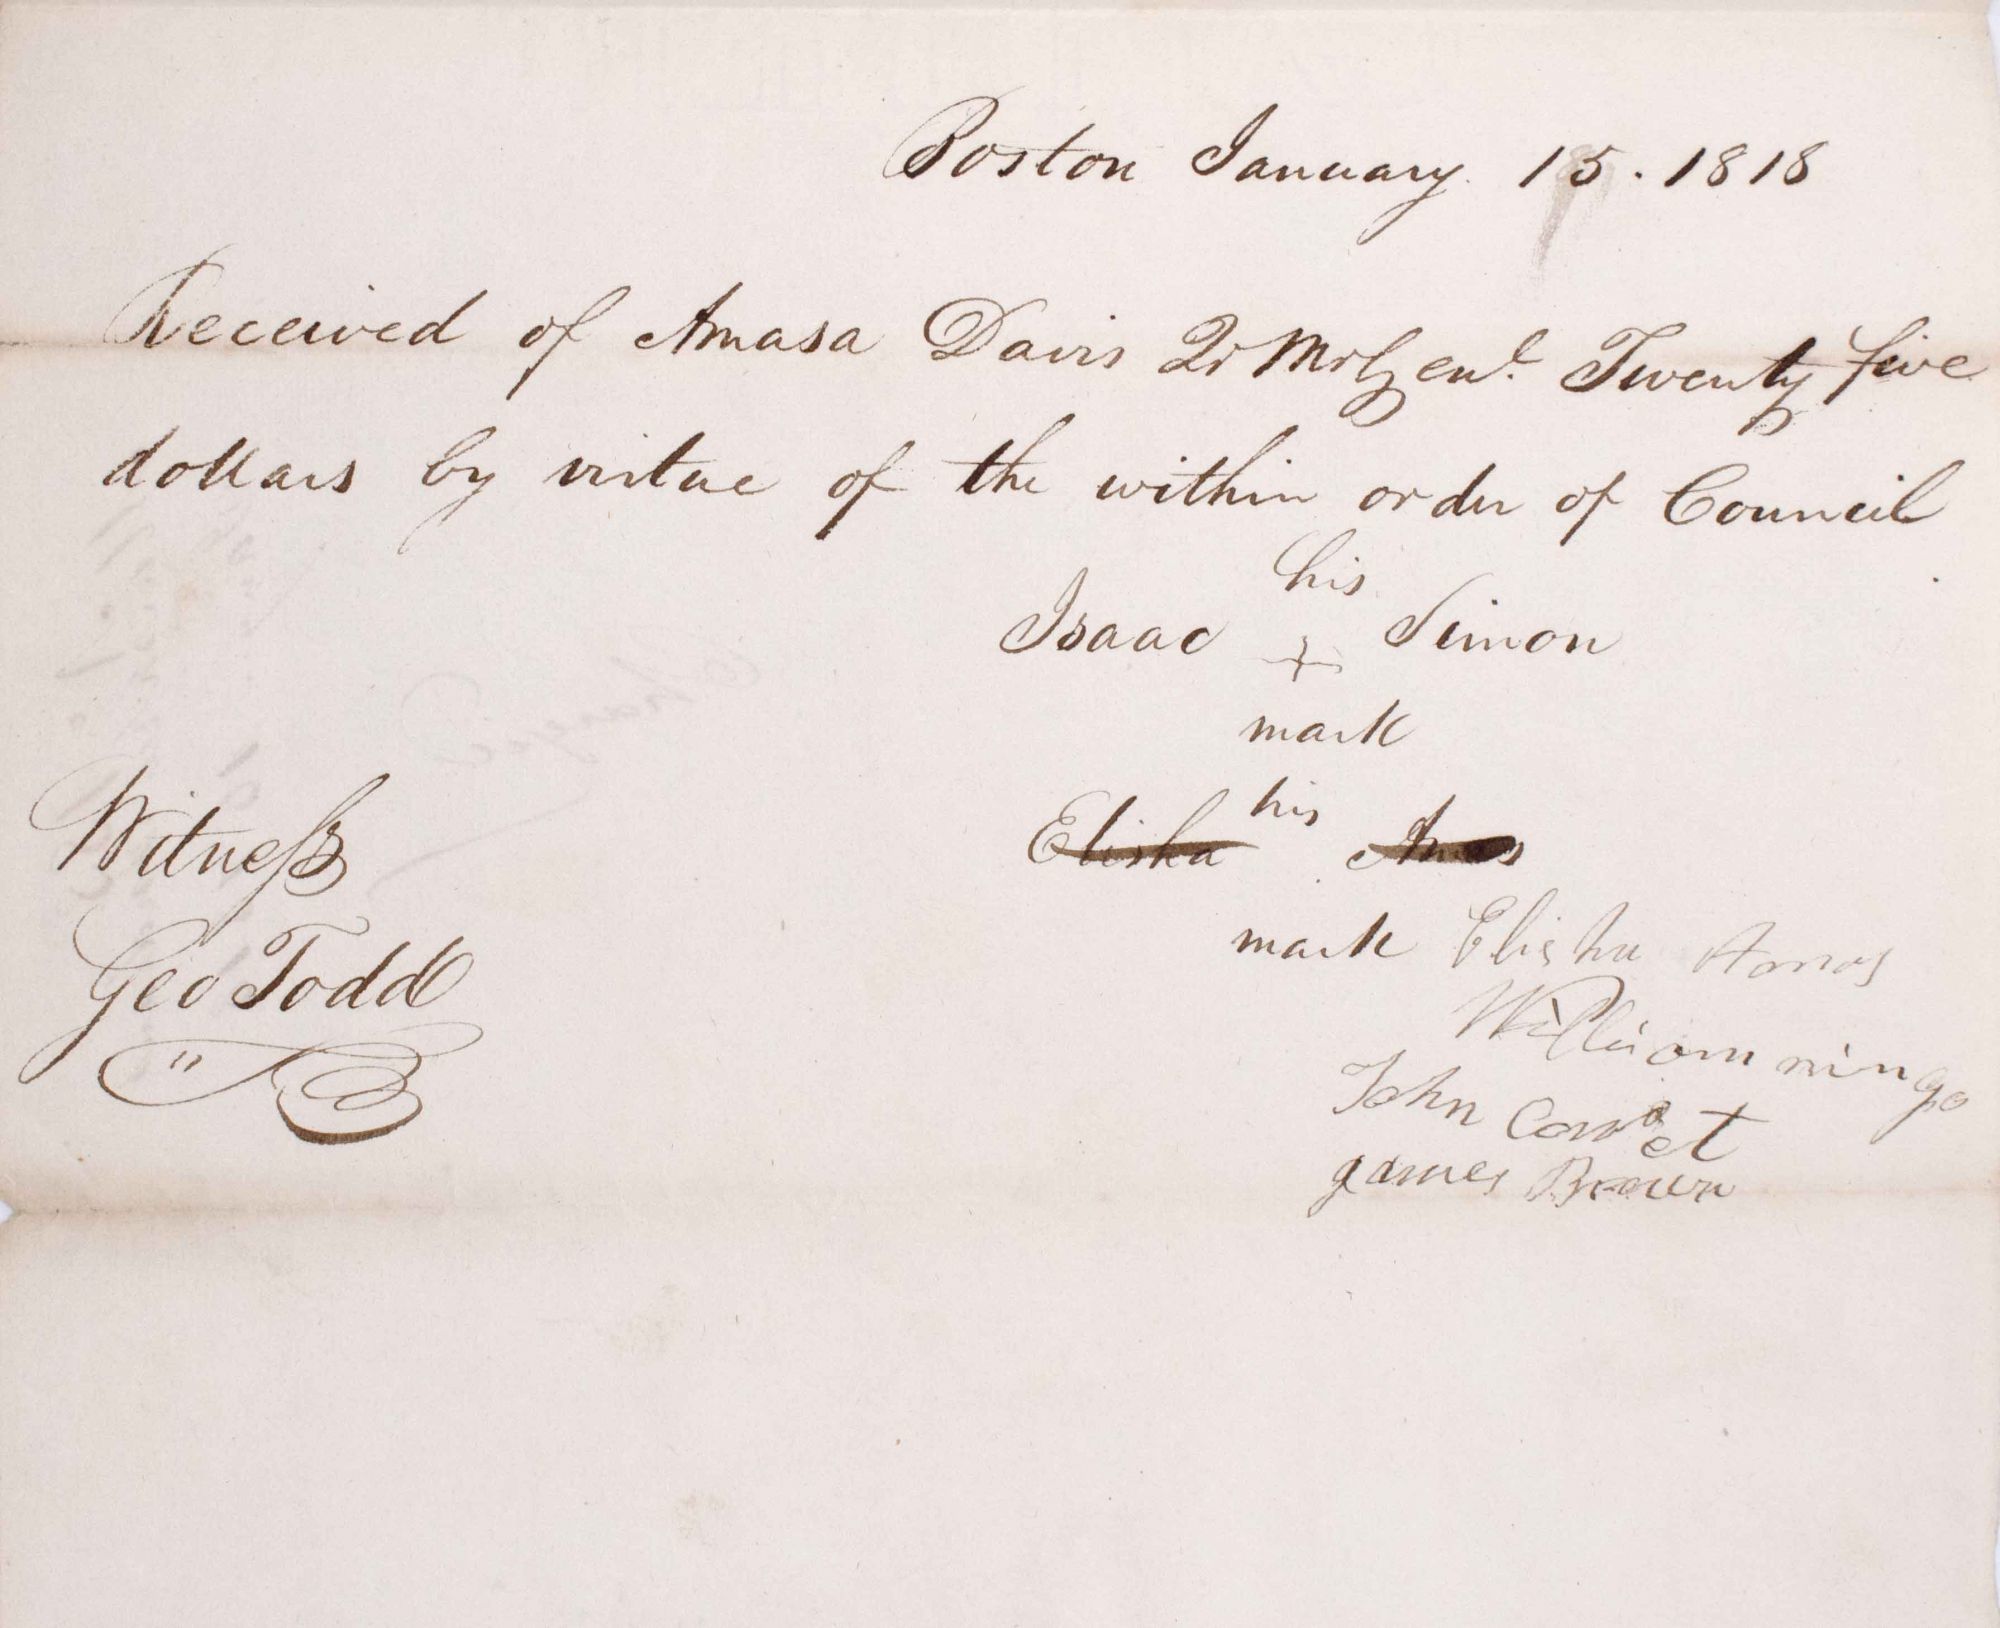 Boston January 15. 1818
Received of Amasa Davis Qr Mr Genl. Twenty five
dollars by virtue of the within order of Council
his
Isaac + Simon
mark
his
Elisha Amos
mark Elisha Amos
William mingo
John
James Brown
Witness
Geo Todd